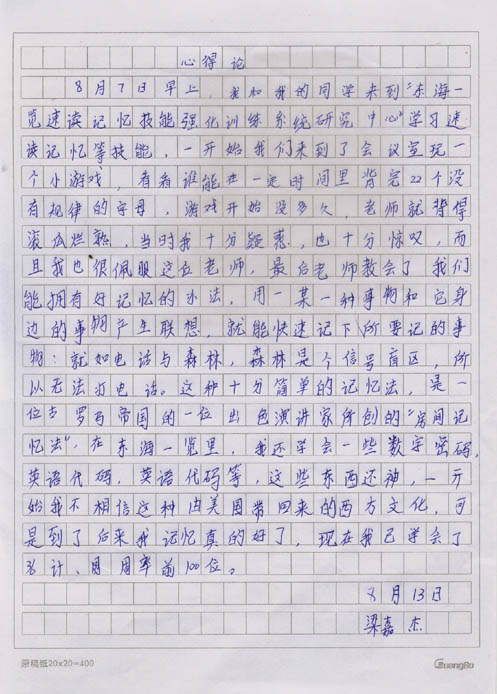 心得论
8月7日早上，我和我的同学来到“东海一
览速读记忆技能强化训练系统研究中心”学习速
读记忆等技能，一开始我们来到了会议室玩一
个小游戏，看看谁能在一定时间里背完22个没
有规律的字母，游戏开始没多久，老师就背得
滚瓜烂熟，当时我十分疑惑，也十分惊叹，而
且我也很佩服这位老师，最后老师教会了我们
能拥有好记忆的办法，用一某一种事物和它身
边的事物产生联想，就能快速记下所要记的事
物：就如电话与森林，森林是个信号盲区，所
以无法打电话。这种十分简单的记忆法，是一
位古罗马帝国的一位出色演讲家所创的“房间记
忆法”，在东海一览里，我还学会一些数字密码，
英语代码，英语代码等，这些东西还神，一开
始我不相信这种由美国带回来的西方文化，可
是到了后来我记忆真的好了，现在我已学会了
计、用周率前100位。
8月13日
梁嘉杰
原稿纸20×20=400
GuangBo